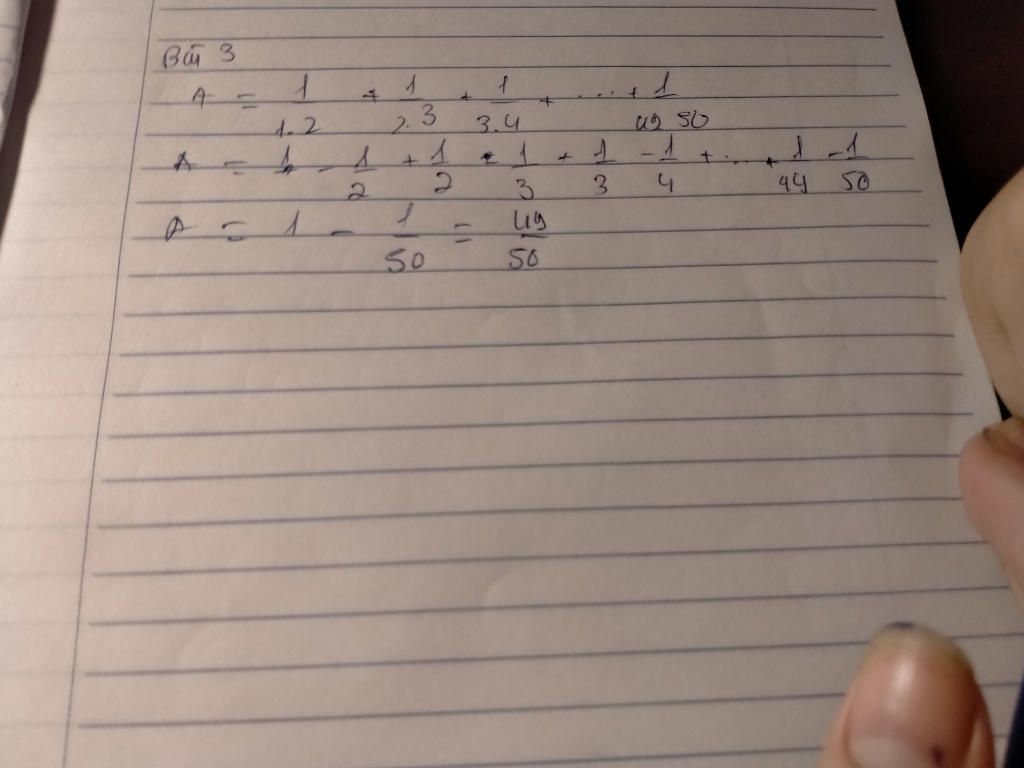 Bài 3
A = 1/1.2 + 1/2.3 + 1/3.4 + ... + 1/49 50
A = 1/1 - 1/2 + 1/2 - 1/3 + 1/3 - 1/4 + ... + 1/44 - 1/50
A = 1 - 1/50 = 49/50